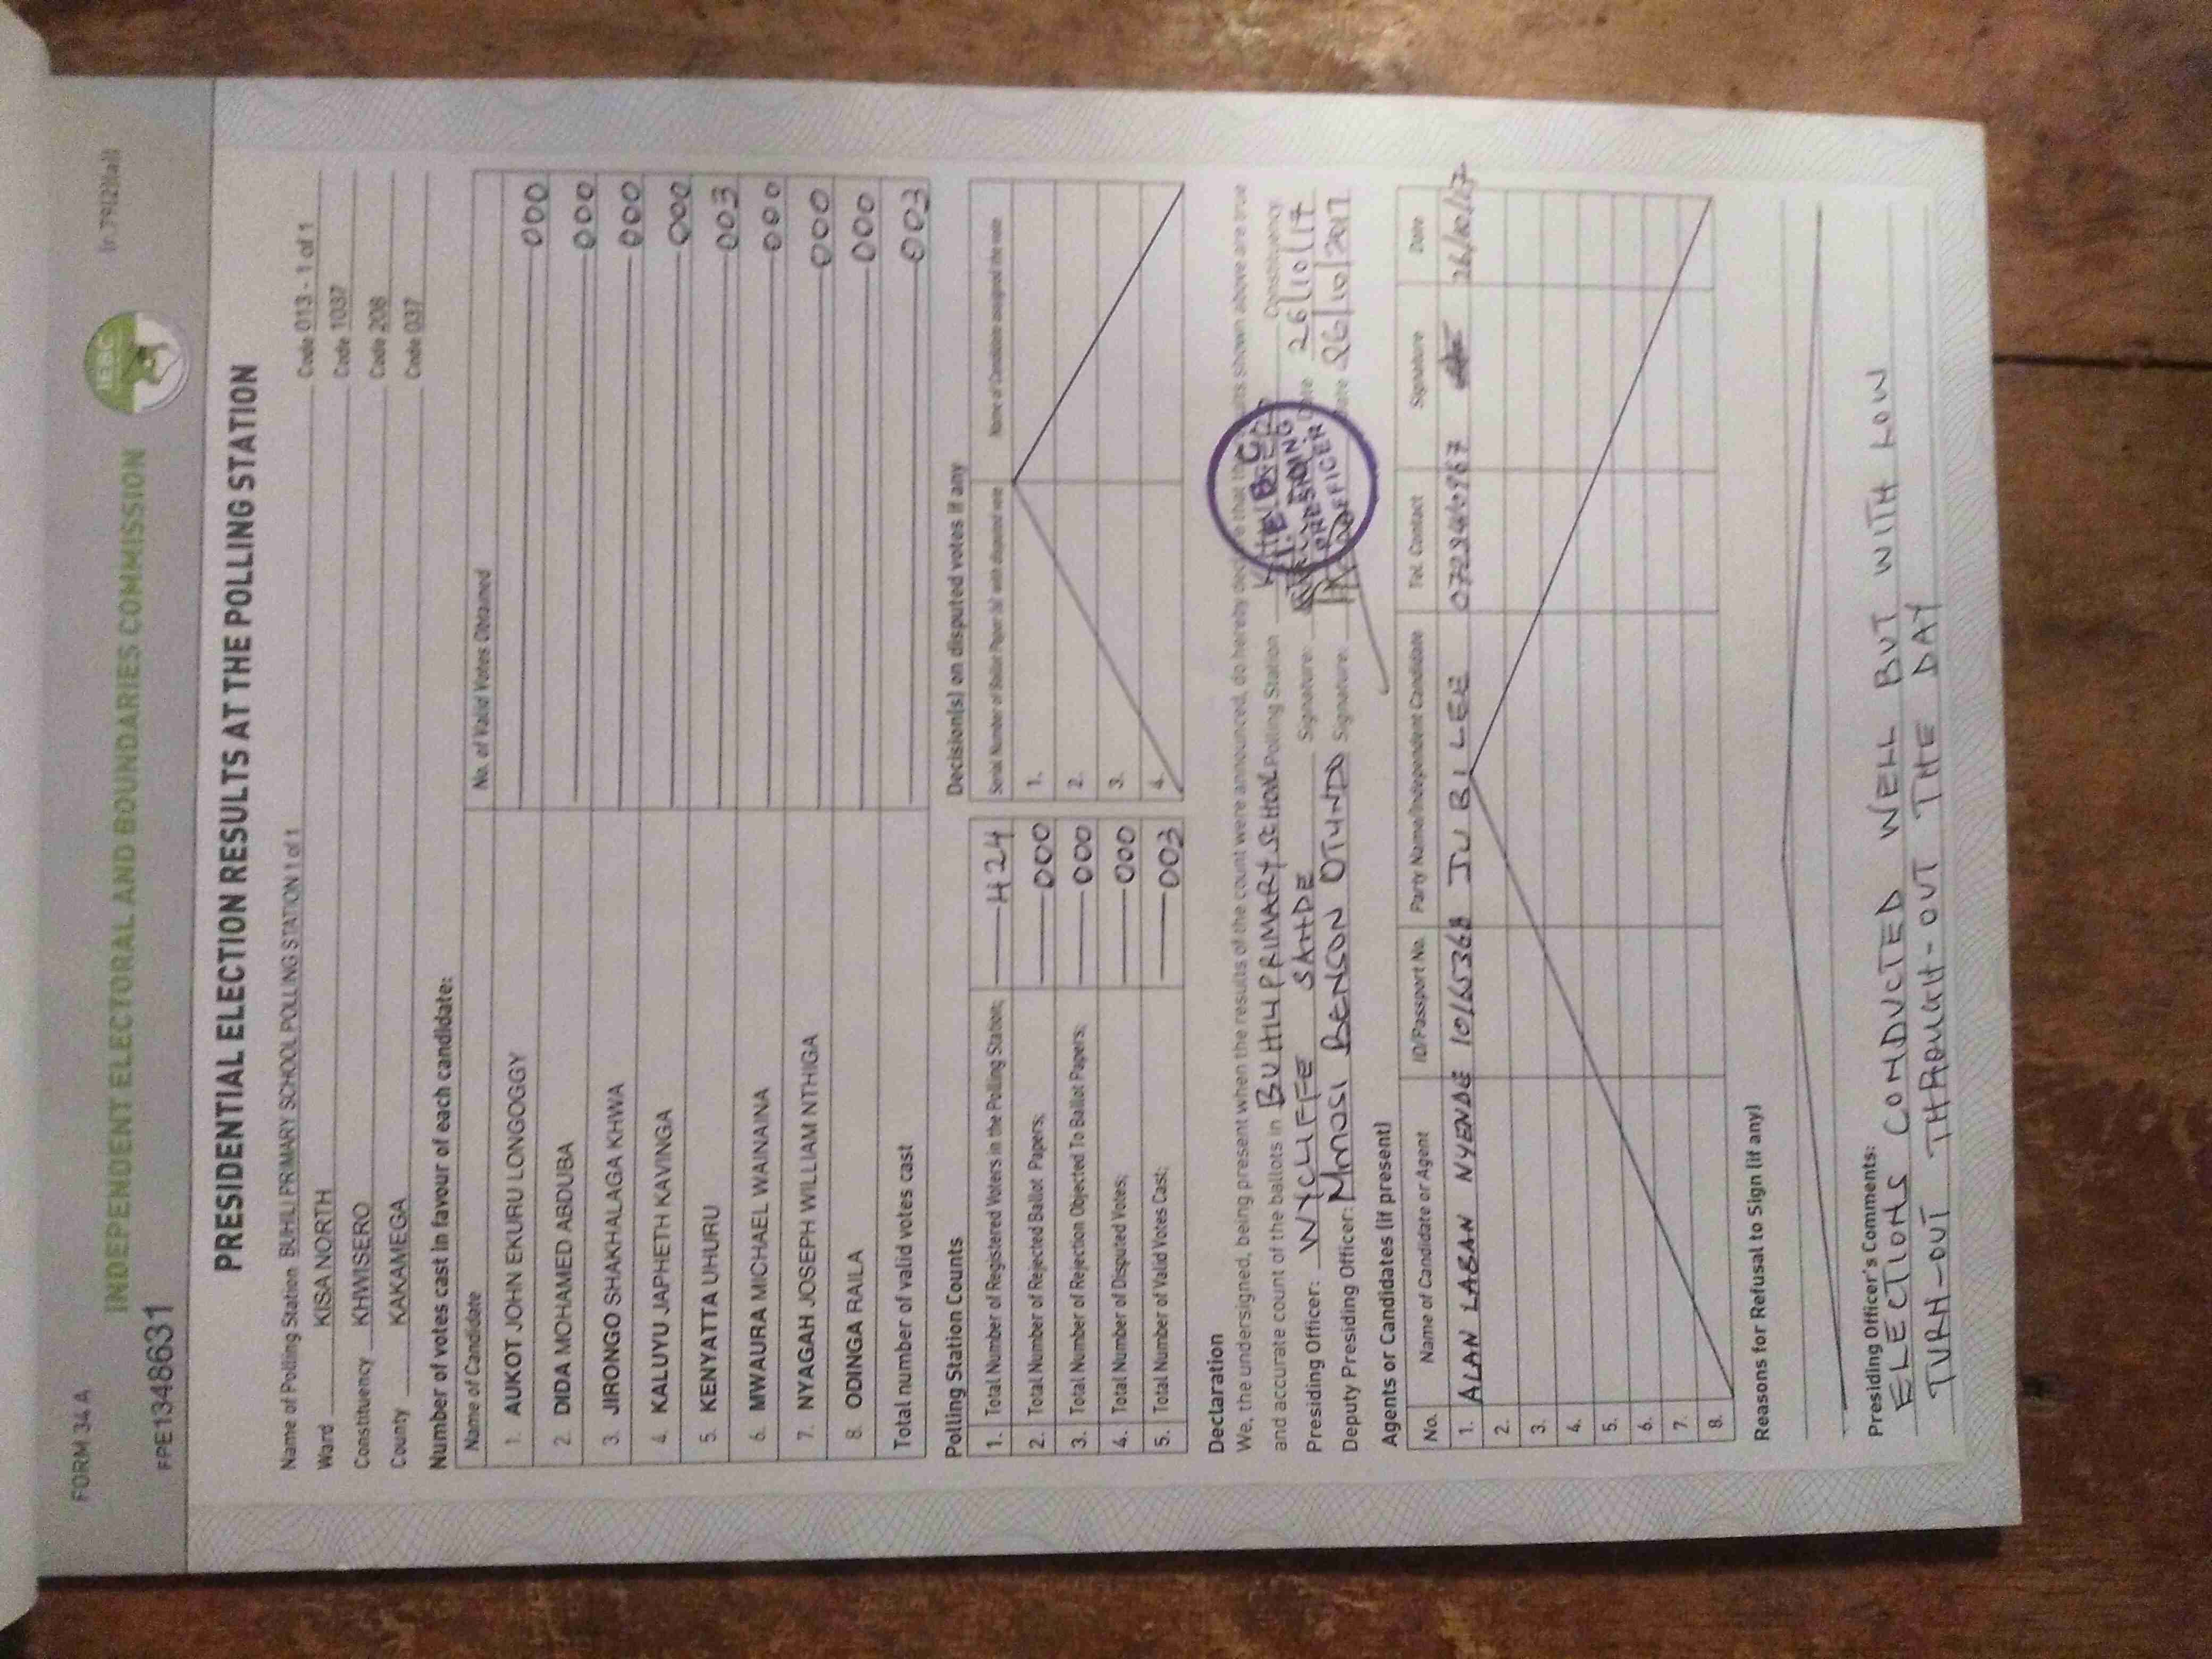 FORM 34 A
INDEPENDENT ELECTORAL AND BOUNDARIES COMMISSION
IEBC
FPE1348631
PRESIDENTIAL ELECTION RESULTS AT THE POLLING STATION
Name of Polling Station BUHILI PRIMARY SCHOOL POLLING STATION 1 of 1 Code 013 - 1 of 1
Ward KISA NORTH Code 1037
Constituency KHWISERO Code 208
County KAKAMEGA Code 037
Number of votes cast in favour of each candidate:
Name of Candidate No. of Valid Votes Obtained
1. AUKOT JOHN EKURU LONGOGGY 000
2. DIDA MOHAMED ABDUBA 000
3. JIRONGO SHAKHALAGA KHWA 000
4. KALUYU JAPHETH KAVINGA 000
5. KENYATTA UHURU 003
6. MWAURA MICHAEL WAINAINA 000
7. NYAGAH JOSEPH WILLIAM NTHIGA 000
8. ODINGA RAILA 000
Total number of valid votes cast 003
Polling Station Counts
1. Total Number of Registered Voters in the Polling Station; 424
2. Total Number of Rejected Ballot Papers; 000
3. Total Number of Rejection Objected To Ballot Papers; 000
4. Total Number of Disputed Votes; 000
5. Total Number of Valid Votes Cast; 003
Decision(s) on disputed votes if any
Serial Number of Ballot Paper (s) with disputed vote Name of Candidate assigned the vote
1.
2.
3.
4.
Declaration
We, the undersigned, being present when the results of the count were announced, do hereby declare that the results shown above are true
and accurate count of the ballots in BUHILI PRIMARY SCHOOL Polling Station Constituency
Presiding Officer: WYCLIFFE SAKHDE Signature: Date 26/10/17
Deputy Presiding Officer: MMOSI BENSON OTUNDO Signature: Date 26/10/2017
I.E.B.C
PRESIDING
OFFICER
Agents or Candidates (if present)
No. Name of Candidate or Agent ID/Passport No. Party Name/Independent Candidate Tel. Contact Signature Date
1. ALAN LABAN NYENDE JUBILEE 26/10/17
2.
3.
4.
5.
6.
7.
8.
Reasons for Refusal to Sign (if any)
Presiding Officer's Comments:
ELECTIONS CONDUCTED WELL BUT WITH LOW
TURN-OUT THROUGH-OUT THE DAY